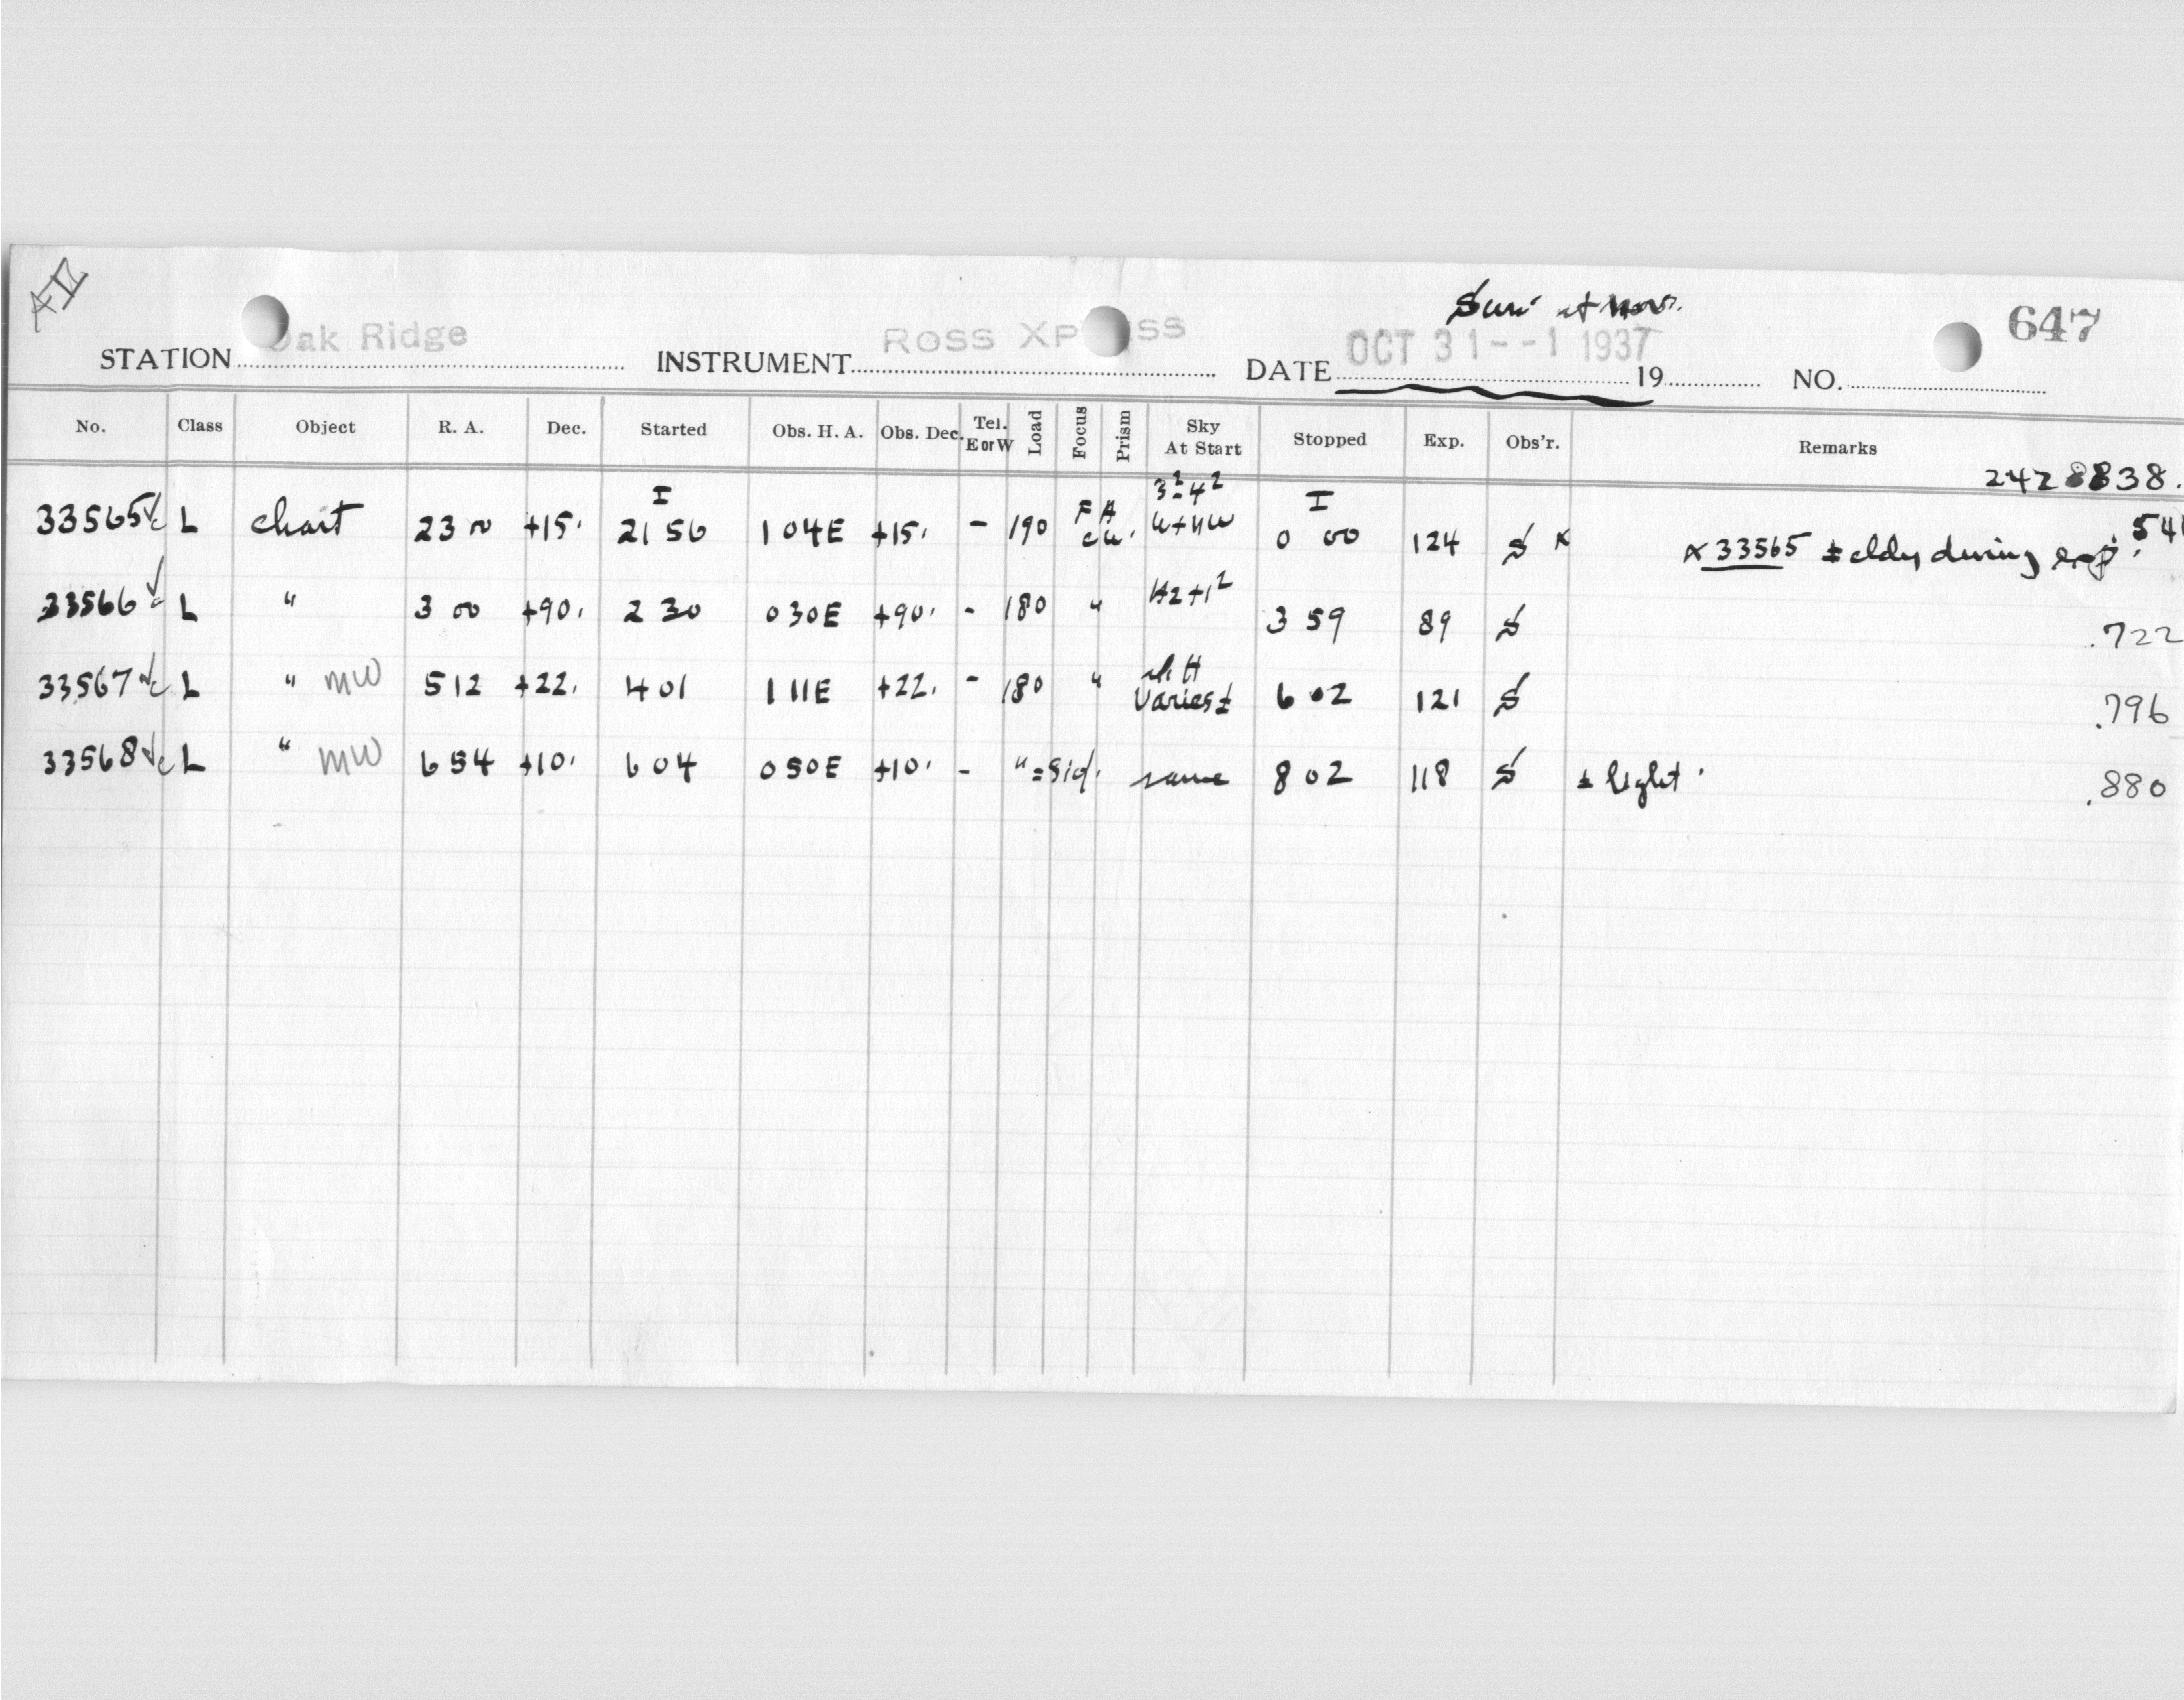 Sun at Nov.
STATION Oak Ridge INSTRUMENT ROSS XP SS DATE OCT 31--1 1937 19 NO. 647
No. Class Object R. A. Dec. Started Obs. H. A. Obs. Dec. Tel. E or W Load Focus Prism Sky At Start Stopped Exp. Obs'r. Remarks
2428838.
33565 L chart 23 00 +15. I 21 56 1 04E +15. - 190 F A 3² 4² I 0 00 124 S x x 33565 ± cldy during exp. .541
33566 L " 3 00 +90. 2 30 0 30E +90. - 180 " H2+1² 3 59 89 S .722
33567 L " MW 5 12 +22. 4 01 1 11E +22. - 180 " H Varies ± 6 02 121 S .796
33568 L " MW 6 54 +10. 6 04 0 50E +10. - " = Sid. same 8 02 118 S ± light. .880